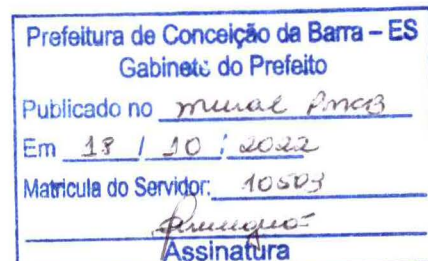 Prefeitura de Conceição da Barra – ES
Gabinete do Prefeito
Publicado no mural PMCB
Em 18 / 10 / 2022
Matricula do Servidor: 10503
Assinatura